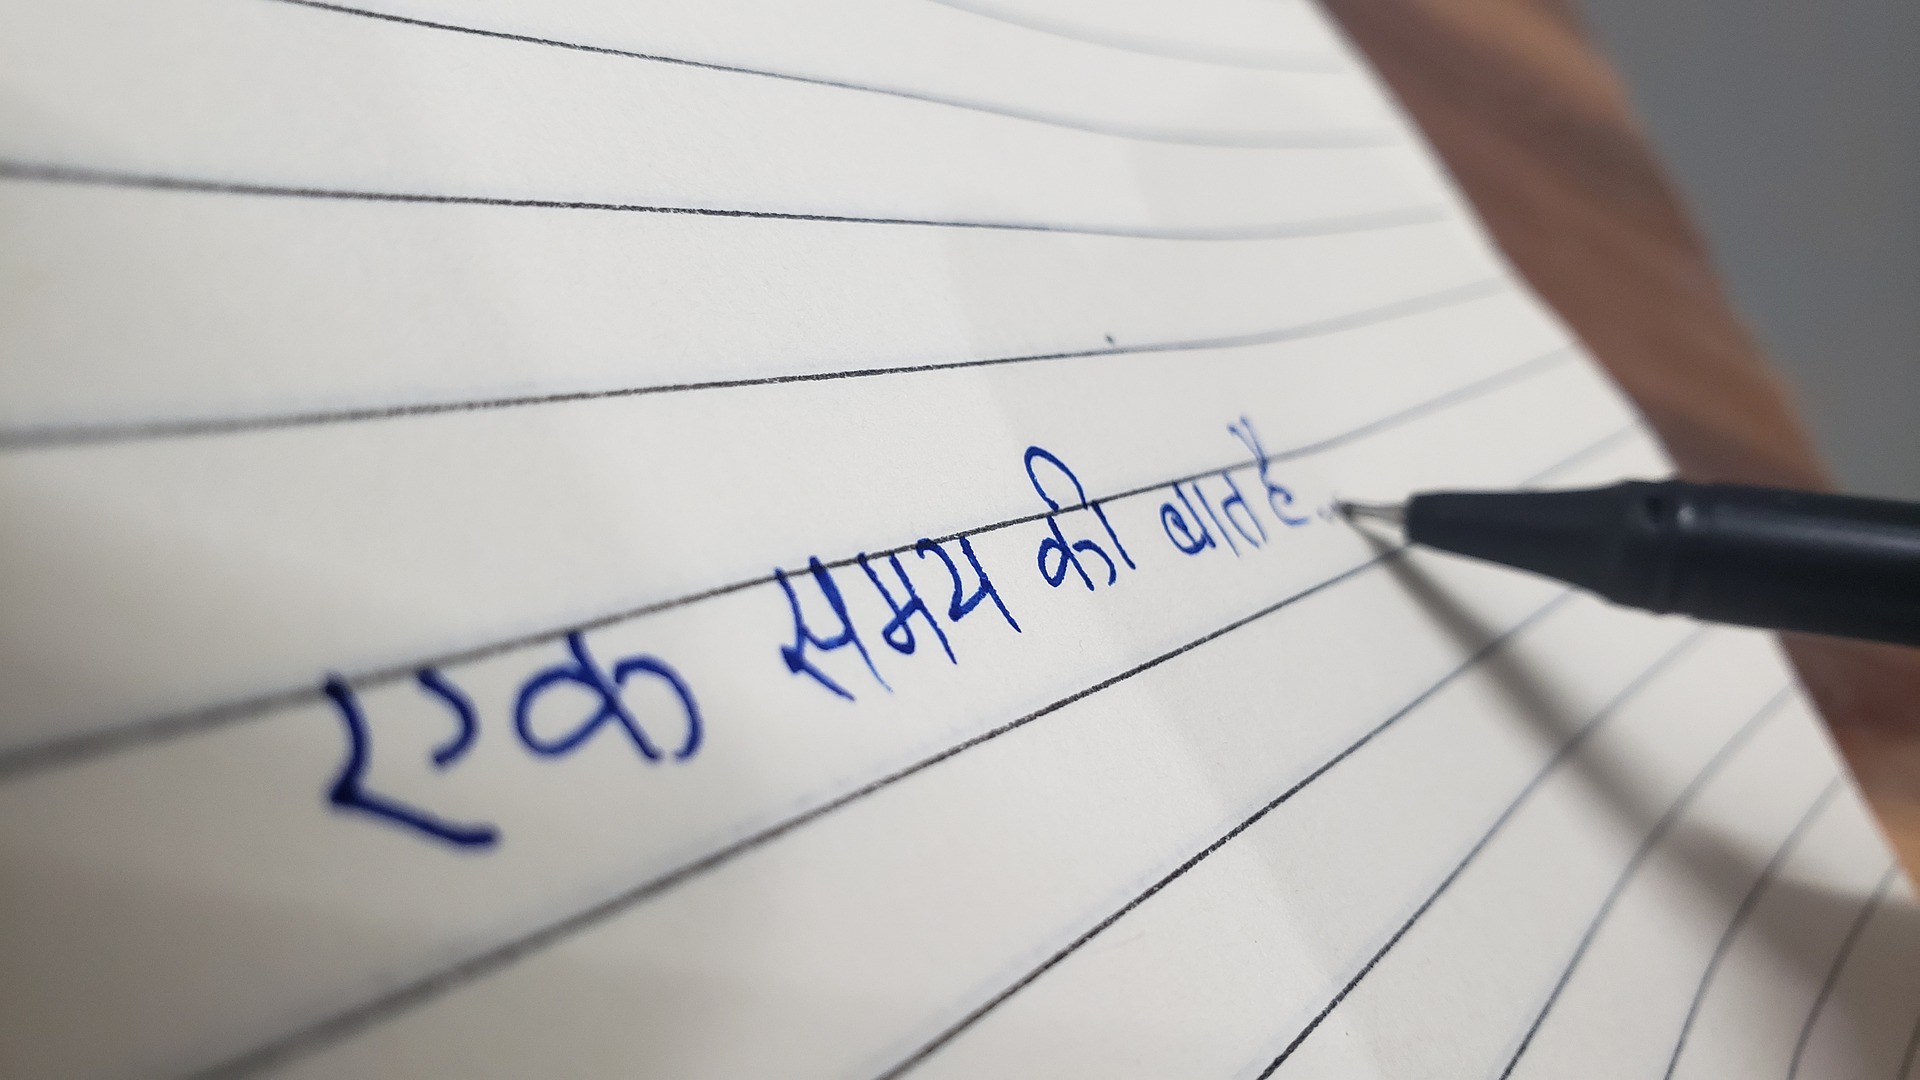 एक समय की बात है...